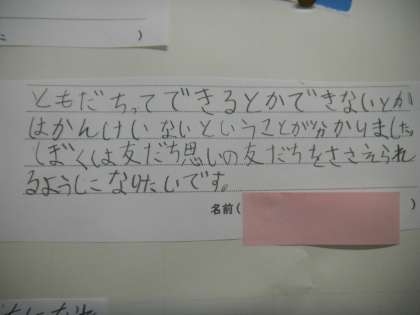 に )
ともだちってできるとかできないとか
はかんけいないということが分かりました。
ぼくは友だち思いの友だちをささえられ
るようになりたいです。
名前(